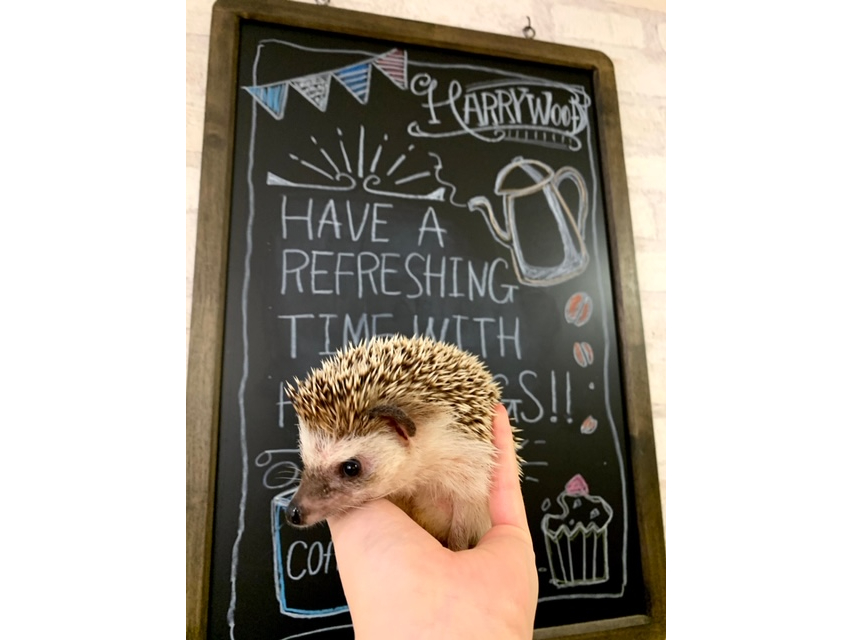 HARRYWOOD
HAVE A
REFRESHING
TIME WITH
GS!!